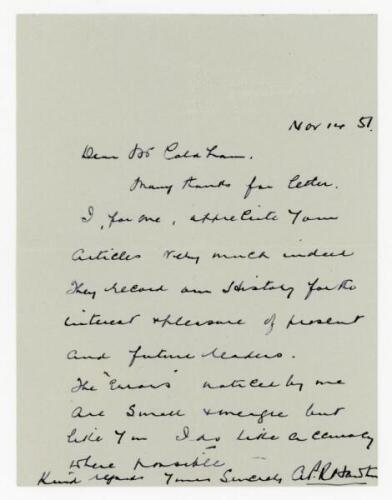 Nov 14 51.
Dear Mr
Many thanks for letter.
I, for me, appreciate your
articles very much indeed
They record our History for the
interest & pleasure of present
and future readers.
The "Errors" noticed by me
are small & meagre but
like you I do like accuracy
where possible
Kind regards Yours Sincerely